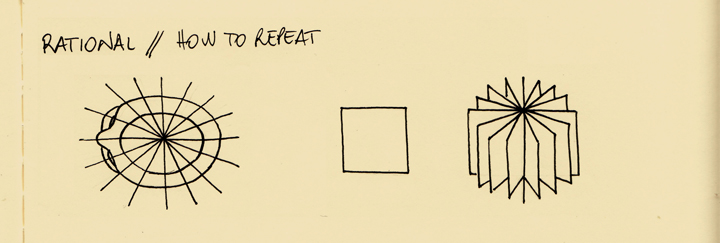 RATIONAL // HOW TO REPEAT